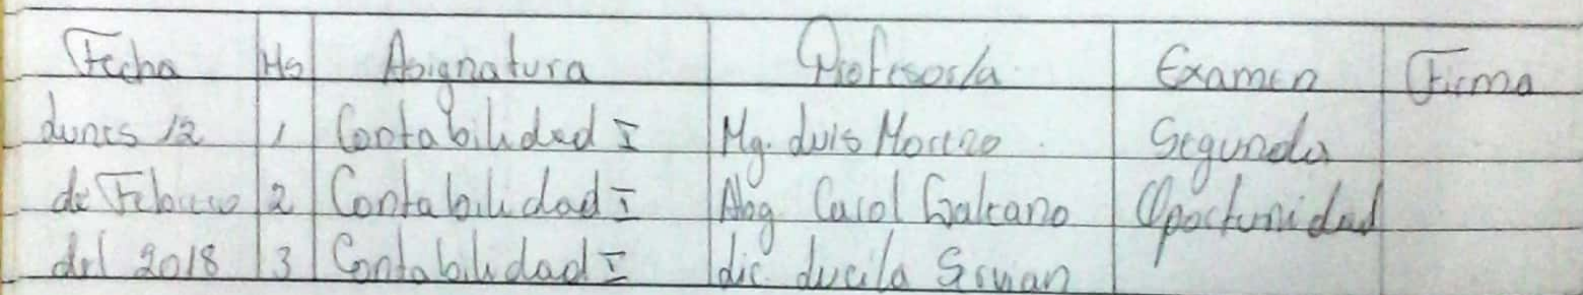 Fecha Hs Asignatura Profesor/a Examen Firma
Lunes 12 1 Contabilidad I Mg. Luis Moreno Segunda
de Febrero 2 Contabilidad I Abg Carol Galeano Oportunidad
del 2018 3 Contabilidad I Lic. Lucila